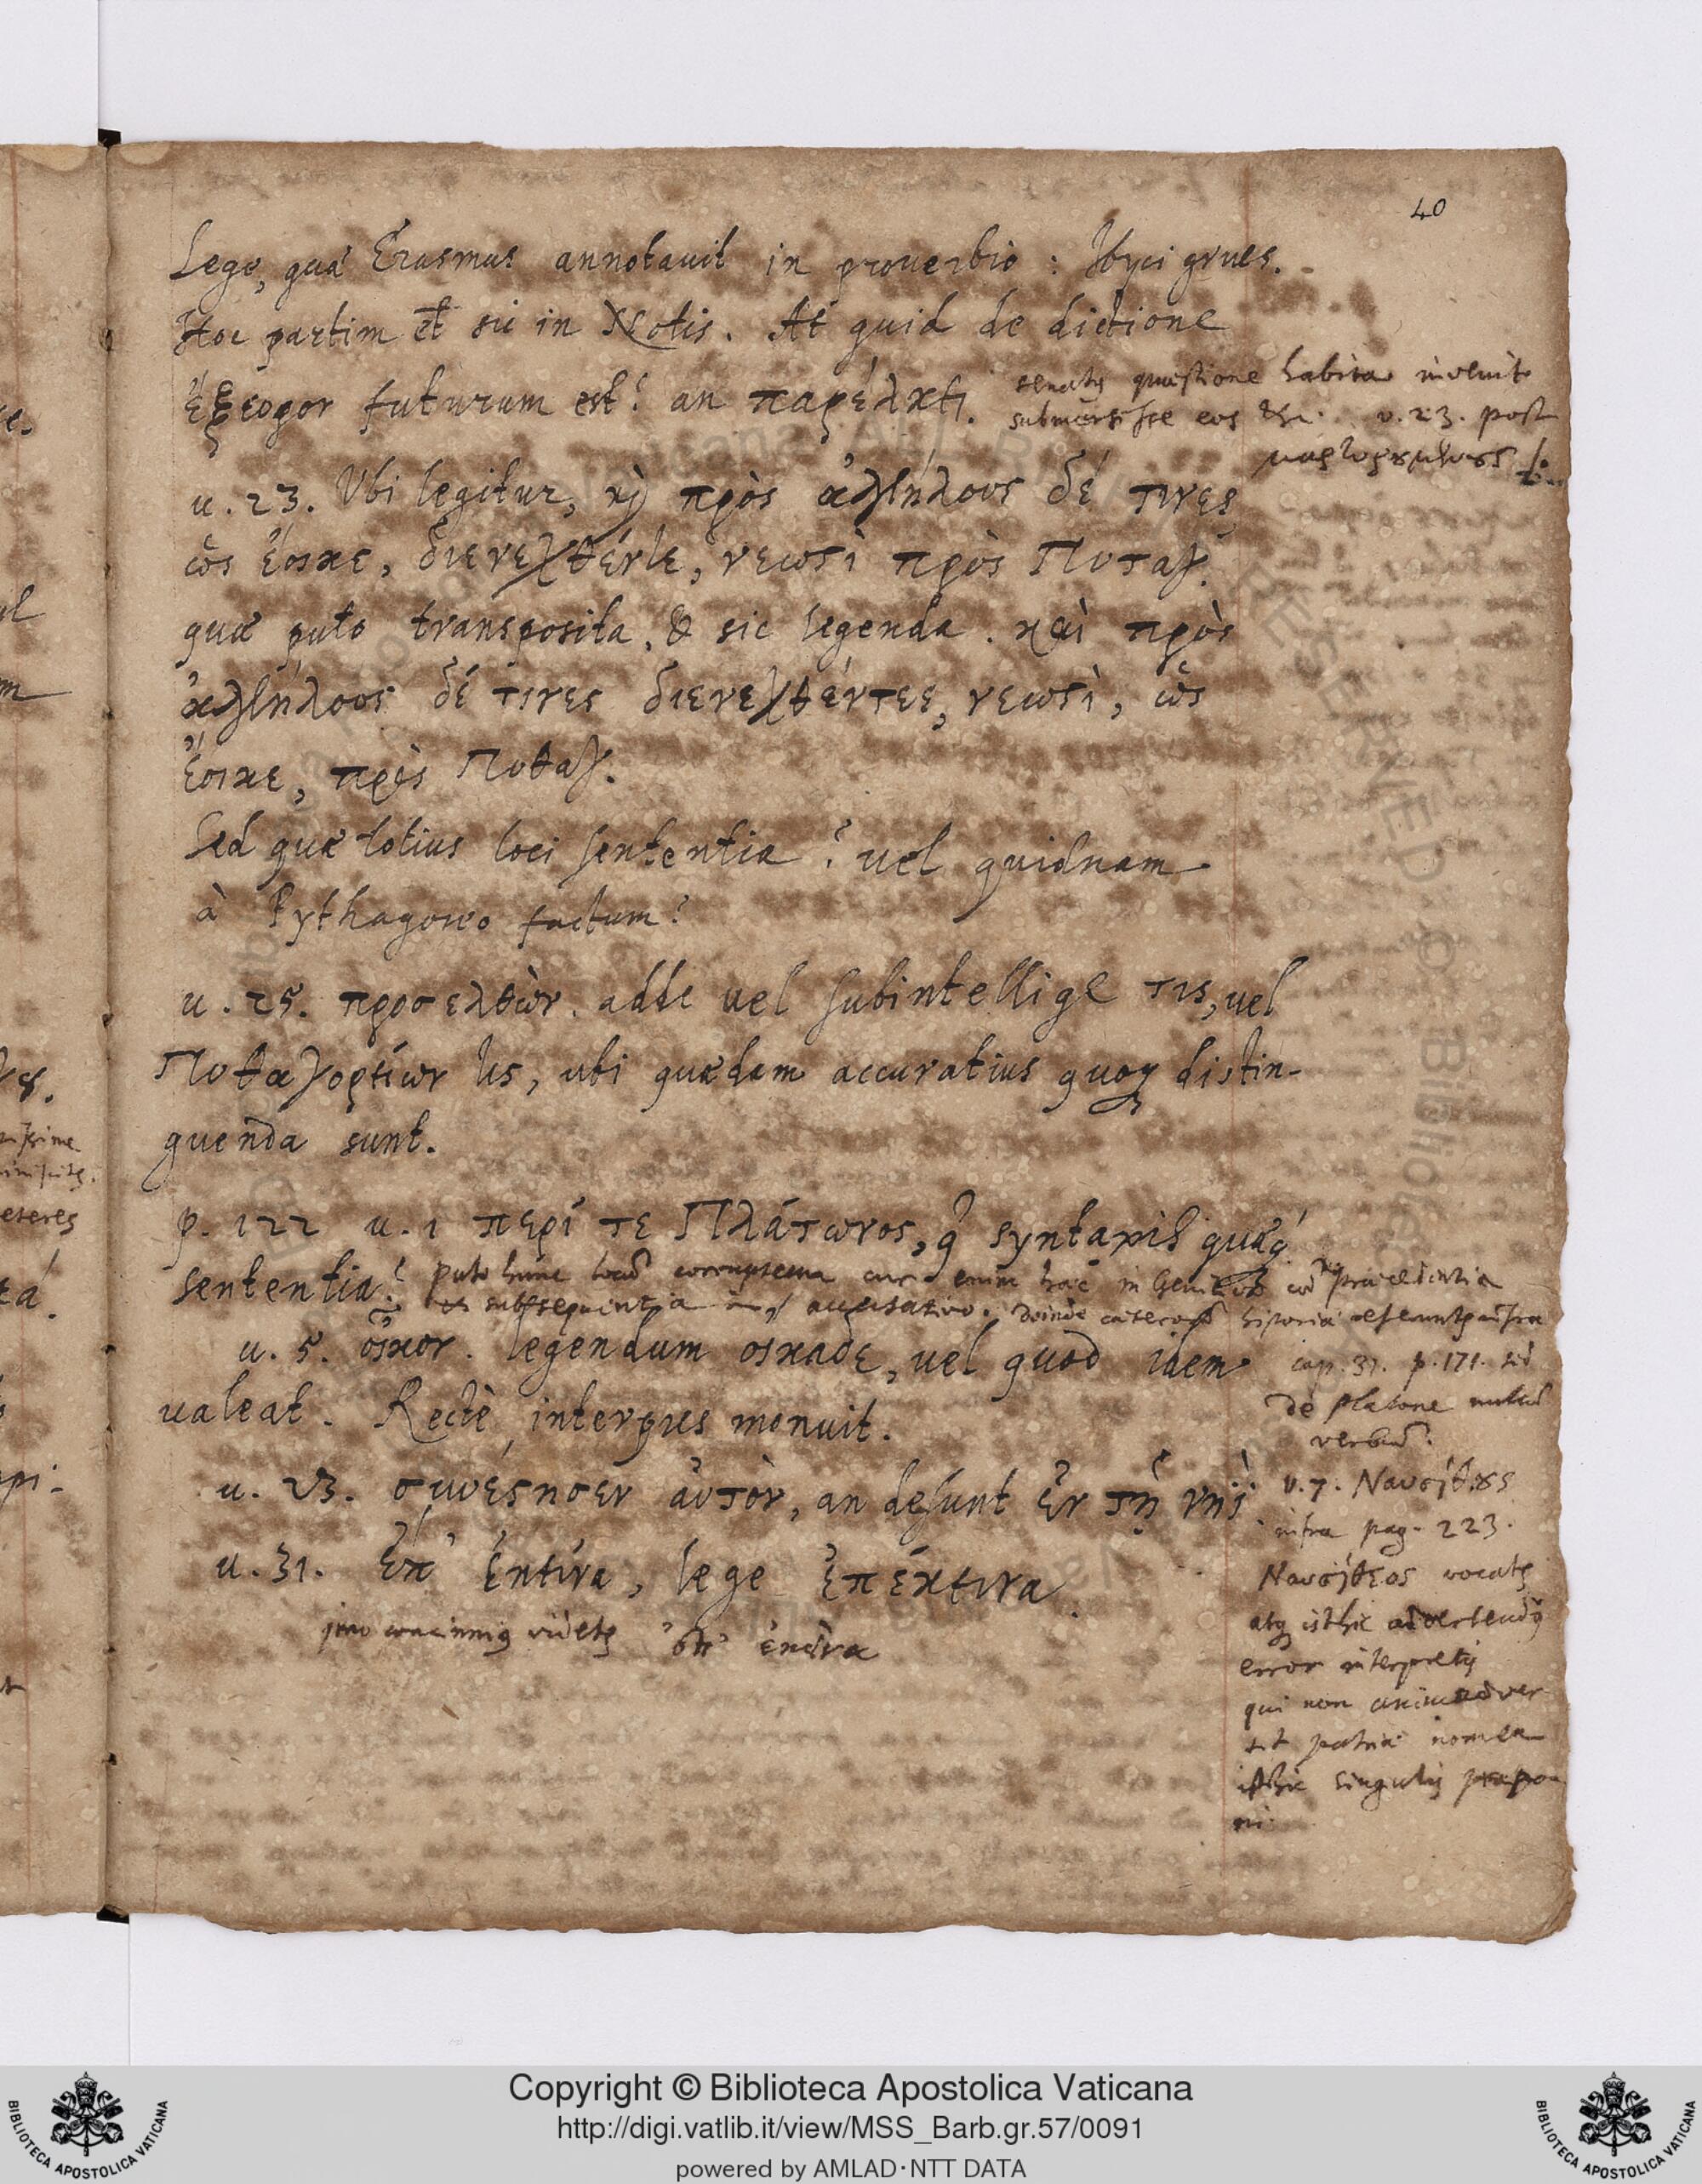 40
Lege, quæ Erasmus annotauit in prouerbio : Ibyci grues.
Hoc partim et sic in Notis. At quid de dictione
ἔξεοφορ futurum est? an παρέλκει.
senatus quæstione habita invenit
submersisse eos &c. v. 23. post
u. 23. Vbi legitur, κỳ πρὸς ἀλλήλους δέ τινες
ὡς ἔοικε, διενεχθέντε, νεωσὶ πρὸς Πυταγ.
quæ puto transposita, & sic legenda. καὶ πρὸς
ἀλλήλους δέ τινες διενεχθέντες, νεωσὶ, ὡς
ἔοικε, πρὸς Πυθαγ.
Sed quæ totius loci sententia? uel quidnam
à Pythagoreo factum?
u. 25. προσελθὼν. adde uel subintellige τις, uel
Πυθαγορείων τις, ubi quædam accuratius quoq distin-
guenda sunt.
p. 122 u. 1 περί τε Πλάτωνος, q syntaxis quæq
sententia?
Puto hunc locū corruptum cur enim hæc in Genitivo cū præcedentia
subsequentia accusativo. Deinde cæterorū historia referuntur infra
cap. 31. p. 171. sed
de Platone nullū
verbū.
u. 5. οἶκον. legendum οἴκαδε, uel quod idem
ualeat. Rectè interpres monuit.
u. 23. συνέστησεν αὐτὸν, an desunt ἐν τῇ νηΐ.
u. 31. ἐπ' ἐκεῖνα, lege ἐπέκεινα
imo concinnius videtur ἐπ' ἐκεῖνα
v. 7. Ναυσίθους
infra pag. 223.
Ναυσίθεος vocatur
atq isthic advertendus
error interpretis
qui non animadver
tit patriæ nomen
isthic singulis præpo
ni.
Copyright © Biblioteca Apostolica Vaticana
http://digi.vatlib.it/view/MSS_Barb.gr.57/0091
powered by AMLAD·NTT DATA
BIBLIOTECA APOSTOLICA VATICANA
BIBLIOTECA APOSTOLICA VATICANA